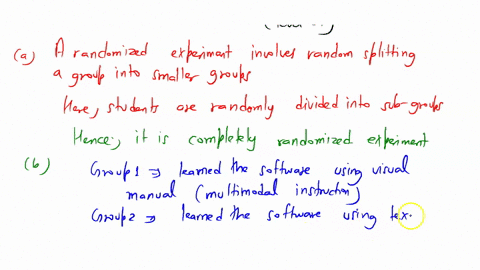 (a) A randomized experiment involves random splitting
a group into smaller groups
Here, students are randomly divided into sub-groups
Hence, it is completely randomized experiment
(b) Group1 ⇒ learned the software using visual
manual (multimodal instructor)
Group2 ⇒ learned the software using tex